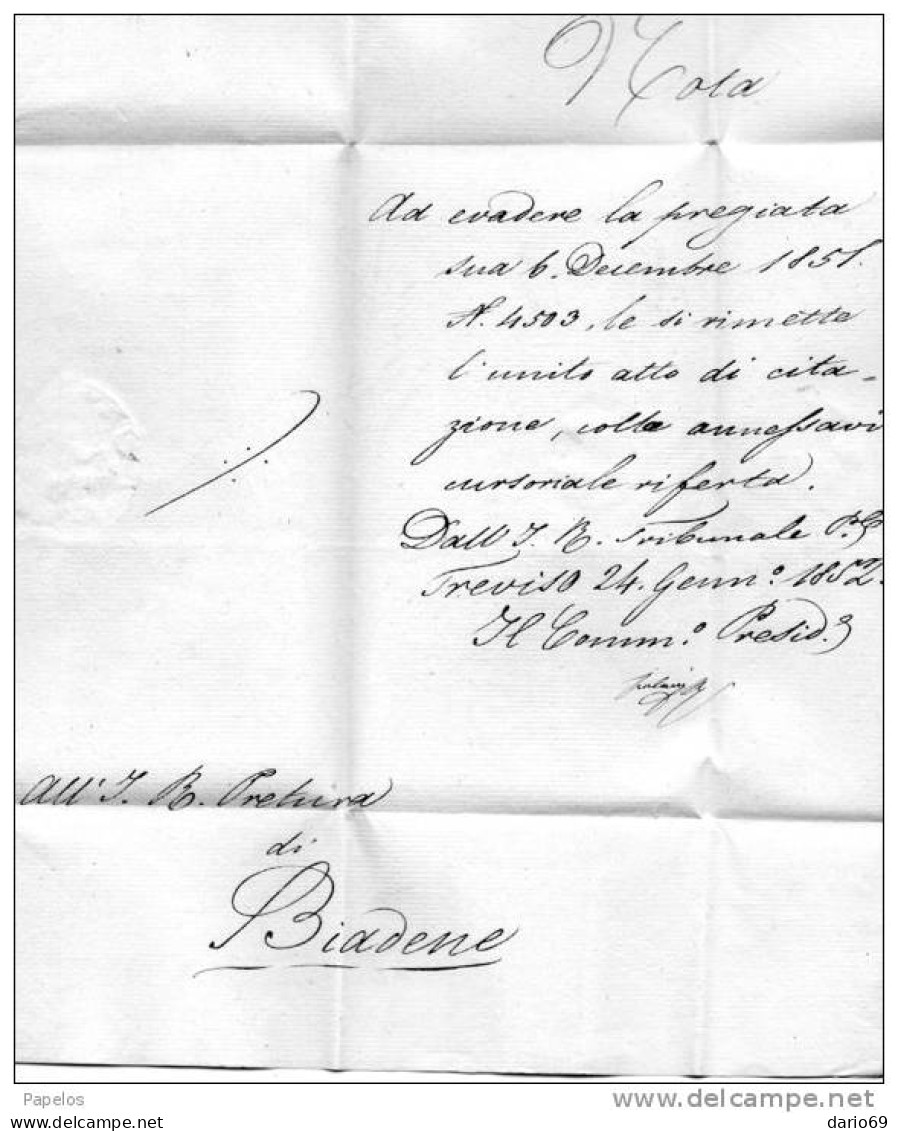 Nota
Ad evadere la pregiata
sua 6. Decembre 1851.
N. 4503, le si rimette
l'unito atto di cita-
zione, colla annessavi
cursoriale riferta.
Dall'I. R. Tribunale P.le
Treviso 24. Genn.o 1852.
Il Comm.o Presid.e
All'I. R. Pretura
di
Biadene
Papelos
www.delcampe.net
dario69